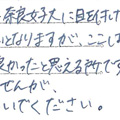 奈良女子大に目を付け
となりますが、ここは
良かったと思える所です
せんが、
いでください。